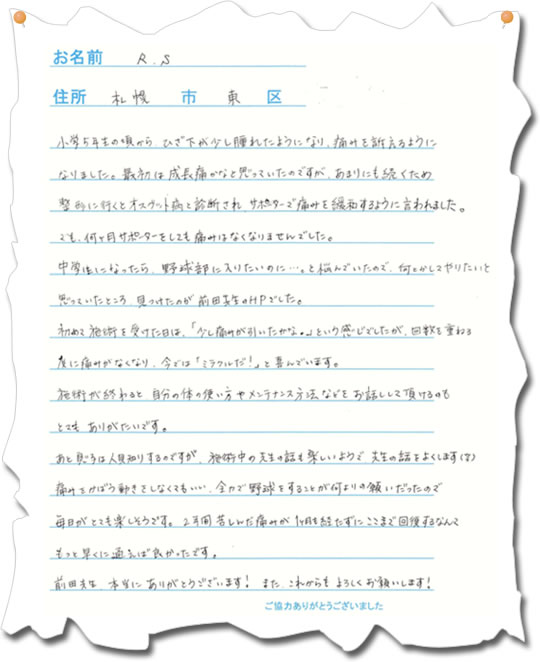 お名前 R.S
住所 札幌 市 東 区
小学5年生の頃から、ひざ下が少し腫れたようになり、痛みを訴えるように
なりました。最初は成長痛かなと思っていたのですが、あまりにも続くため
整形に行くとオスグット病と診断され、サポーターで痛みを緩和するように言われました。
でも、何ヶ月サポーターをしても痛みはなくなりませんでした。
中学生になったら、野球部に入りたいのに…。と悩んでいたので、何とかしてやりたいと
思っていたところ、見つけたのが前田先生のHPでした。
初めて施術を受けた日は、「少し痛みが引いたかな。」という感じでしたが、回数を重ねる
度に痛みがなくなり、今では「ミラクルだ!」と喜んでいます。
施術が終わると、自分の体の使い方やメンテナンス方法などをお話しして頂けるのも
とてもありがたいです。
あと息子は人見知りするのですが、施術中の先生の話も楽しいようで先生の話をよくします(笑)
痛みをかばう動きをしなくてもいい、全力で野球をすることが何よりの願いだったので
毎日がとても楽しそうです。2年間苦しんだ痛みが1ヶ月も経たずにここまで回復するなんて
もっと早くに通えば良かったです。
前田先生、本当にありがとうございます! また、これからもよろしくお願いします!
ご協力ありがとうございました